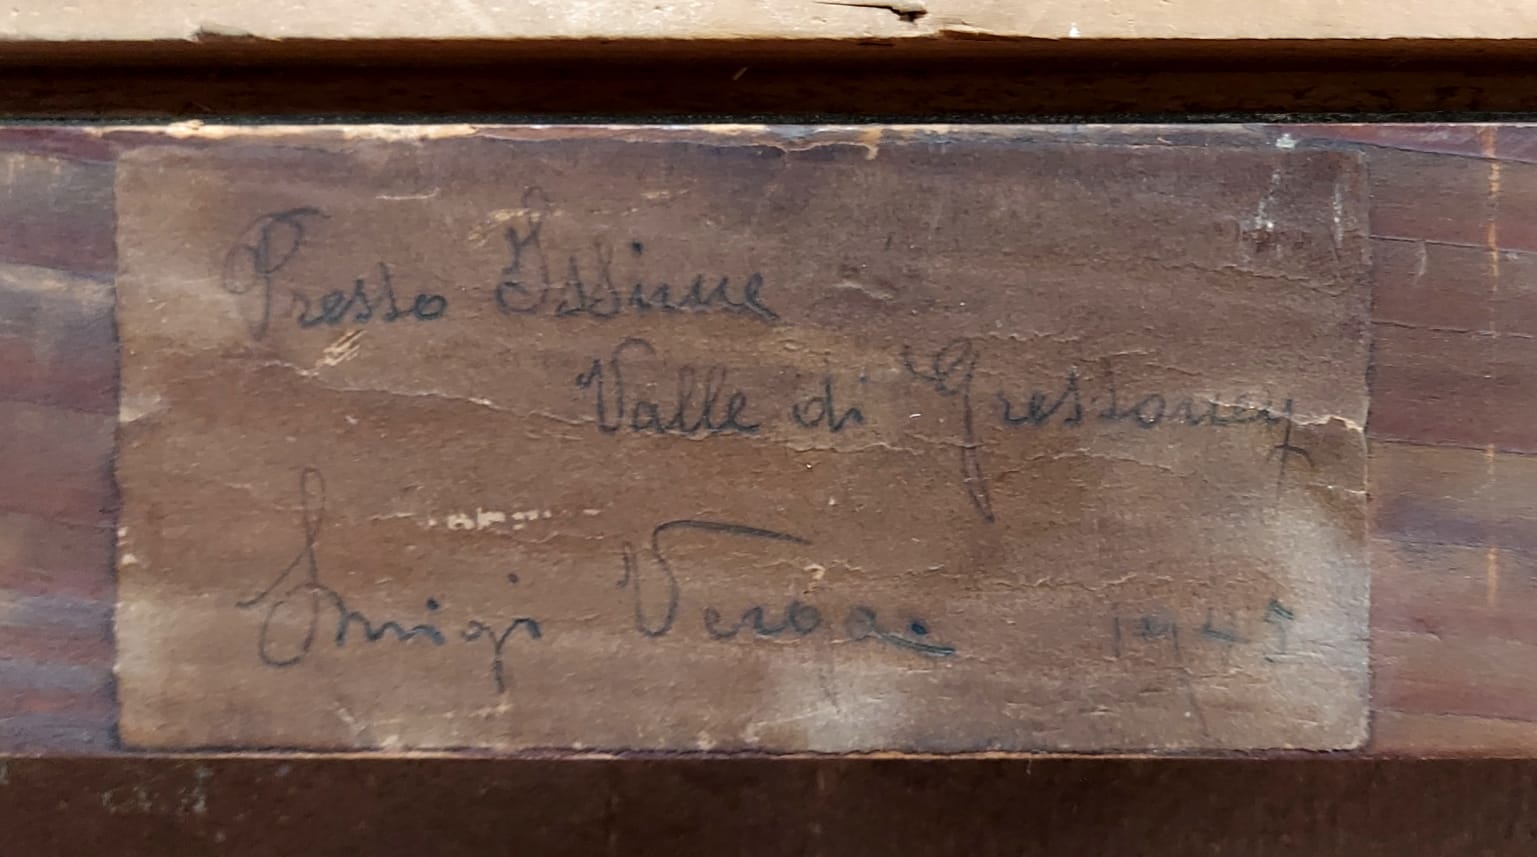 Presso Issime
Valle di Gressoney
Luigi Verga. 1945